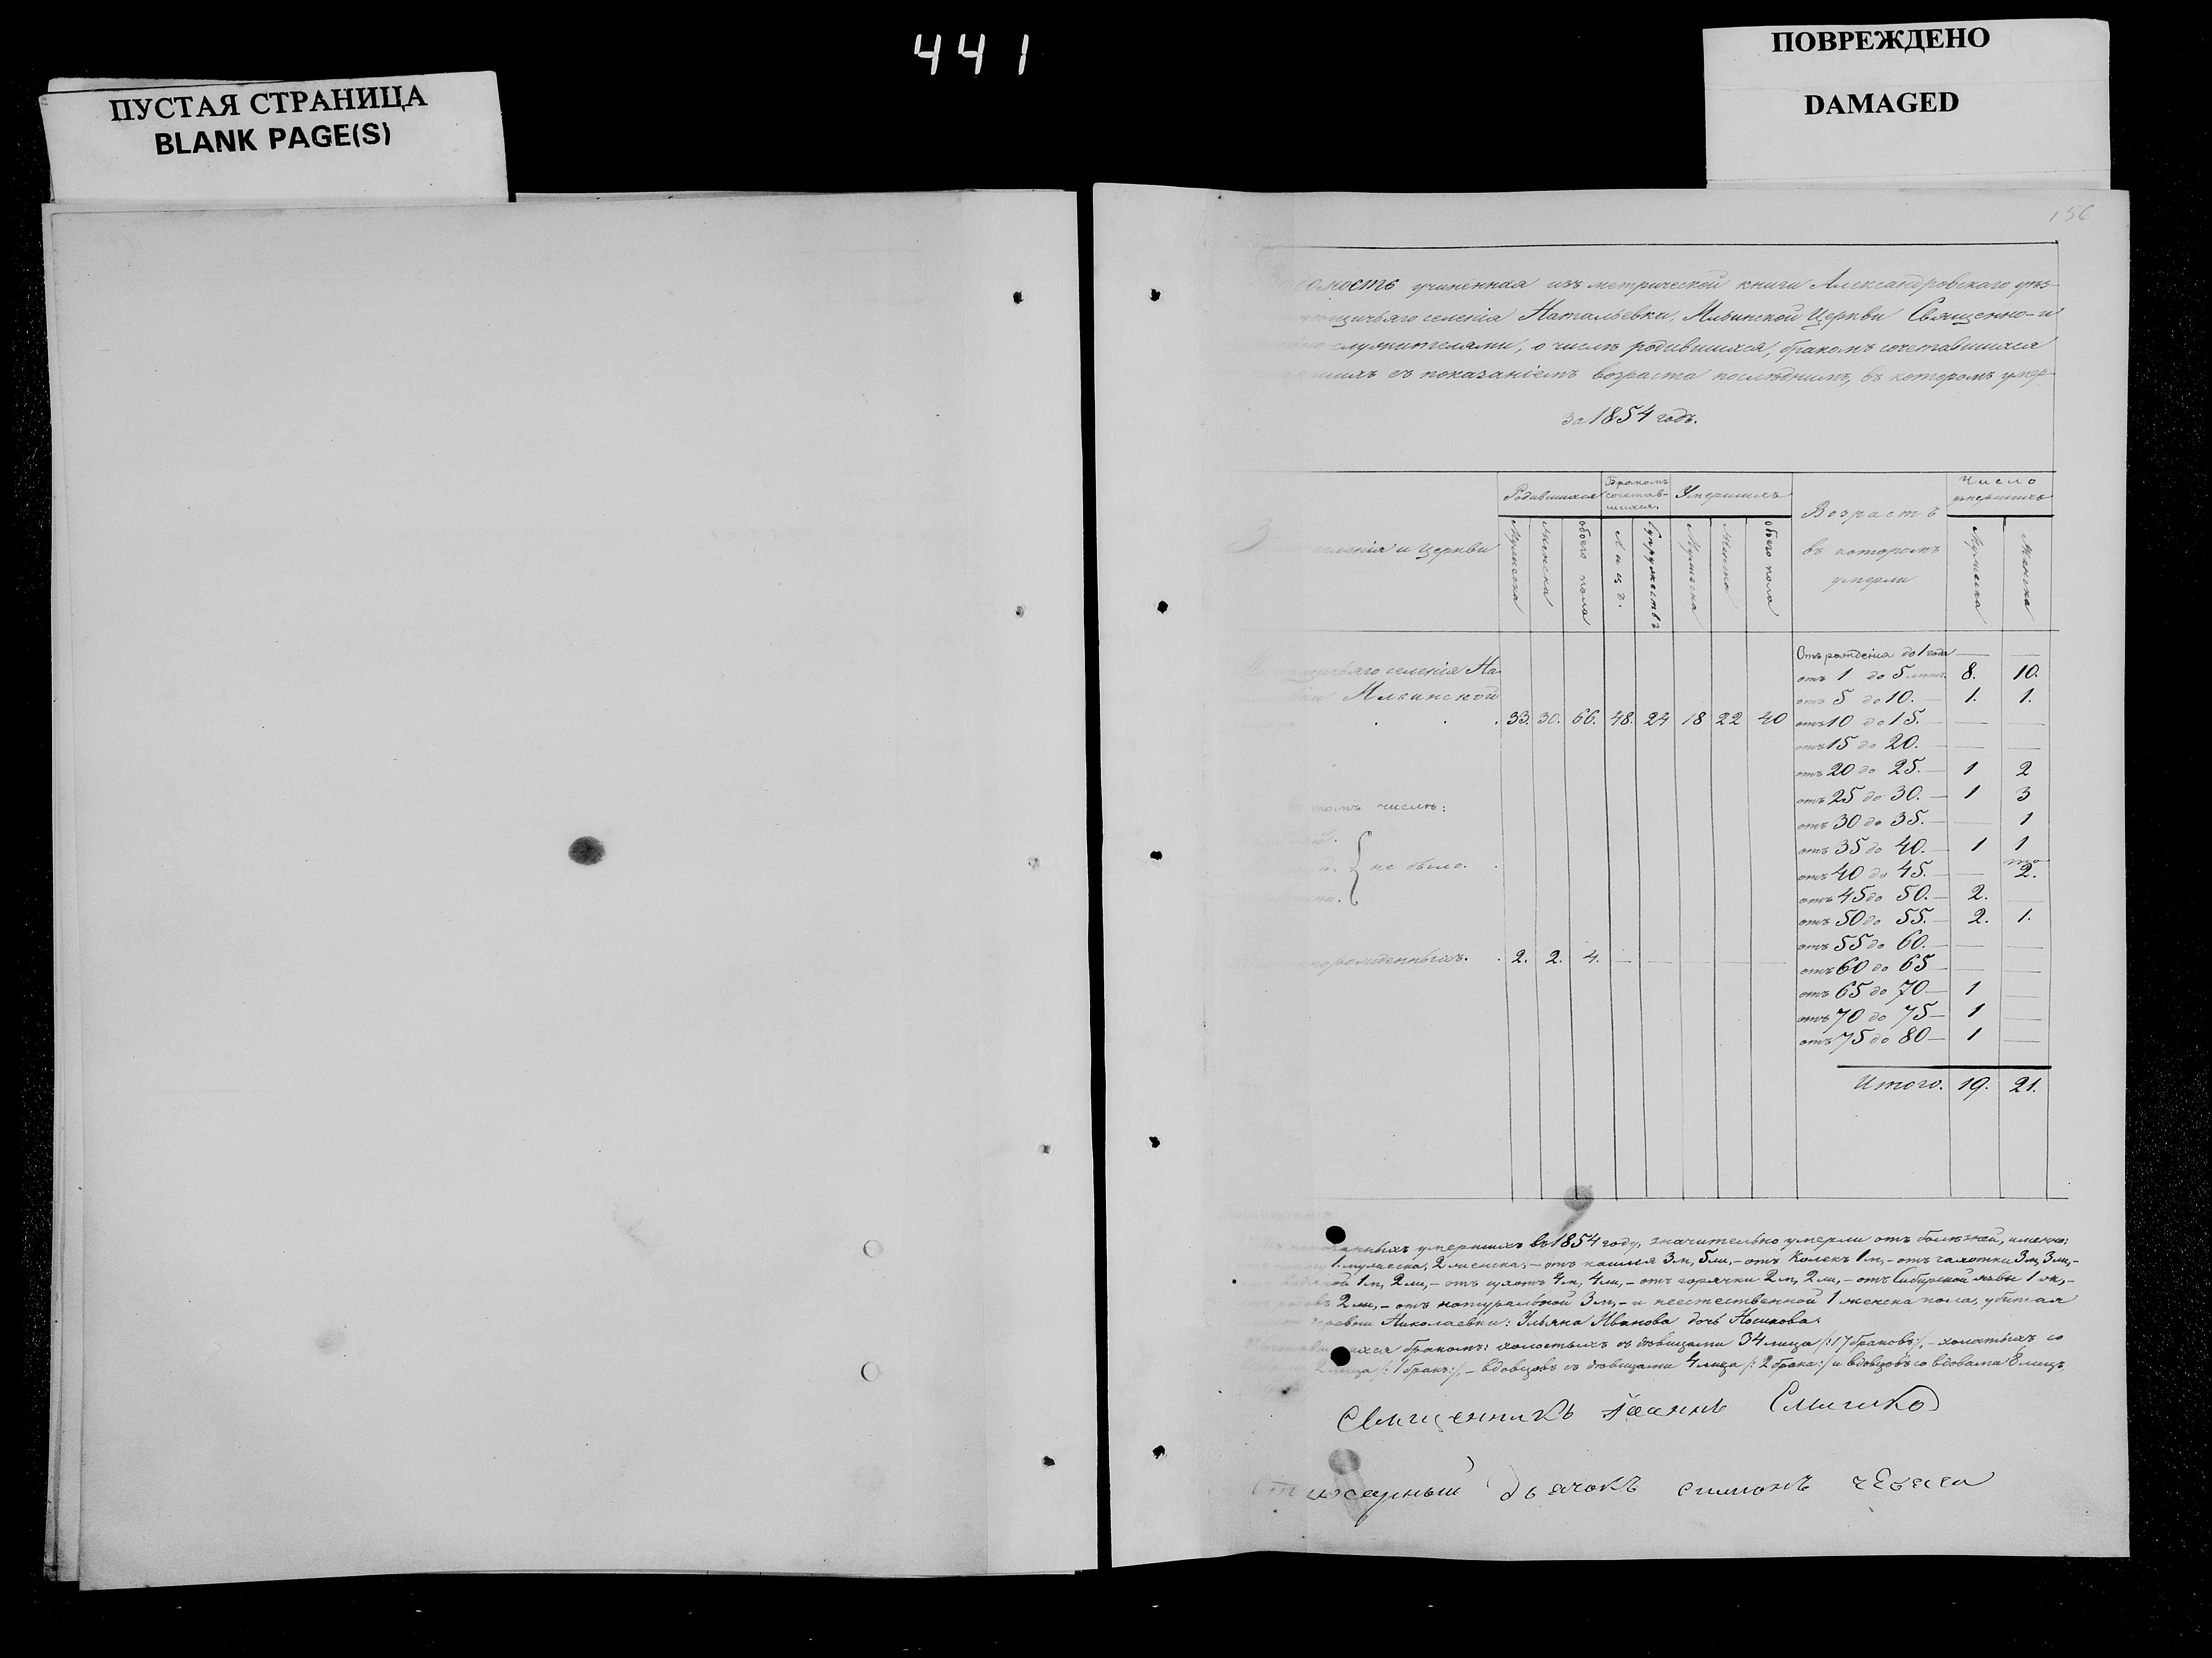 441
ПУСТАЯ СТРАНИЦА
BLANK PAGE(S)
ПОВРЕЖДЕНО
DAMAGED
156
учиненная изъ метрической книги Александровскаго уѣз-
селенія Натальевки, Ильинской Церкви Священно-и
служителями, о числѣ родившихся, бракомъ сочетавшихся
съ показаніемъ возраста послѣднимъ, въ которомъ умер-
за 1854 годъ.
селенія и Церкви
Родившихся
Мужеска
Женска
обоего пола
Бракомъ
сочетав-
шихся.
Лицъ.
Супружествъ
Умершихъ
Мужеска
Женска
обоего пола
Возрастъ
въ которомъ
умерли
Число
умершихъ
Мужеска
Женска
Отъ рожденія до 1 года — —
селенія На-
отъ 1 до 5 лѣтъ. 8. 10.
Ильинской
отъ 5 до 10. — 1. 1.
. . . 33. 30. 66. 48. 24 18 22 40 отъ 10 до 15. — —
отъ 15 до 20. — —
отъ 20 до 25. — 1 2
томъ числѣ:
отъ 25 до 30. — 1 3
отъ 30 до 35. — 1
отъ 35 до 40. — 1 1
не было.
отъ 40 до 45. — 2.
отъ 45 до 50. — 2. —
отъ 50 до 55. — 2. 1.
отъ 55 до 60. — —
2. 2. 4. — — — — —
отъ 60 до 65 — —
отъ 65 до 70 — 1 —
отъ 70 до 75 — 1 —
отъ 75 до 80 — 1 —
Итого. 19. 21.
умершихъ въ 1854 году, значительно умерли отъ болѣзней, именно:
1 мужеска, 2 женска, — отъ кашля 3 м, 5 ж, — отъ Колекъ 1 м, — отъ чахотки 3 м, 3 ж, —
1 м, 2 ж, — отъ сухотъ 4 м, 4 ж, — отъ горячки 2 м, 2 ж, — отъ Сибирской язвы 1 ж, —
2 ж, — отъ натуральной 3 м, — и неестественной 1 женска пола, убитая
деревни Николаевки: Ульяна Иванова дочь Носикова.
бракомъ: холостыхъ съ дѣвицами 34 лица /:17 браковъ:/, — холостыхъ со
2 лица /: 1 бракъ:/, — вдовцовъ съ дѣвицами 4 лица /: 2 брака:/ и вдовцовъ со вдовами 8 лицъ,
Священникъ Іоаннъ
дьячокъ симонъ